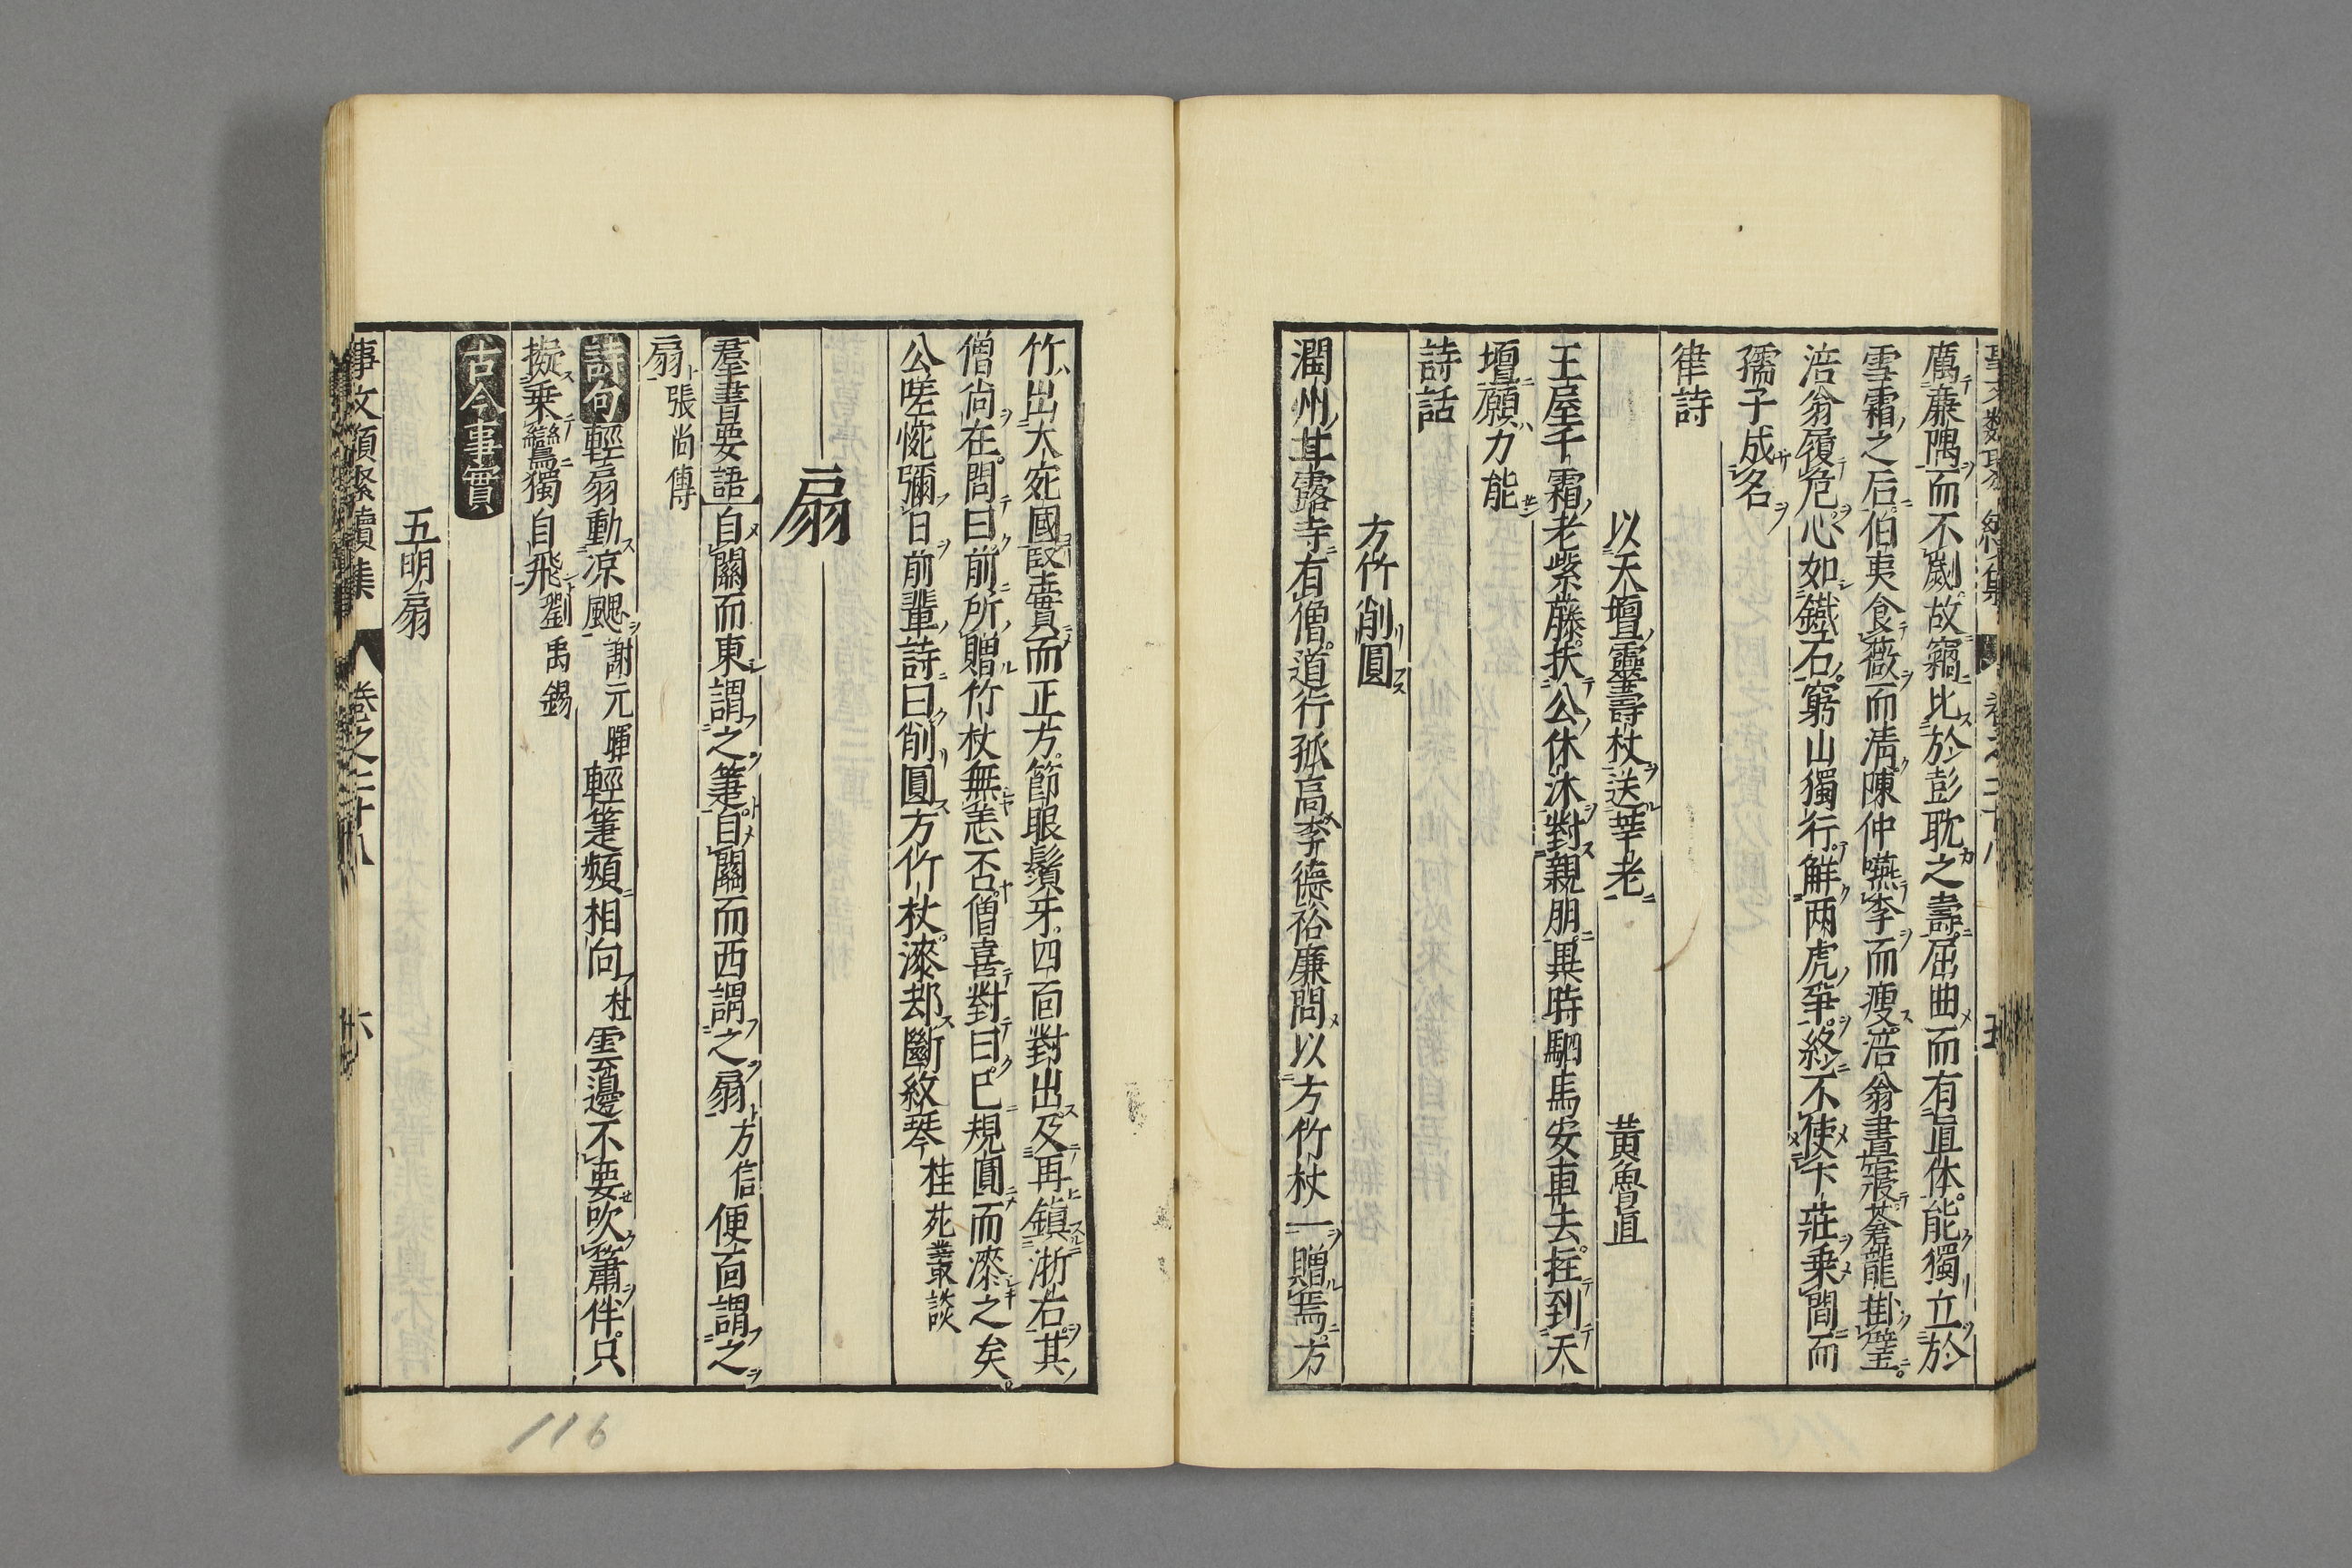 厲廉隅而不劌故竊比於彭耽之壽屈曲而有直体能獨立於
雪霜之后伯夷食薇而清陳仲嚥李而瘦涪翁晝寢蒼龍掛壁
涪翁履危心如鐵石窮山獨行觧兩虎爭終不使卞莊乗間而
孺子成名
律詩
以天壇靈壽杖送莘老 黃魯直
王屋千霜老紫藤扶公休沐對親朋異時駟馬安車去拄到天
壇願力能
詩話
方竹削圓
潤州甘露寺有僧道行孤高李德裕廉問以方竹杖一贈焉方
竹出大宛國堅實而正方節眼鬚牙四面對出及再鎮浙右其
僧尚在問曰前所贈竹杖無恙否僧喜對曰已規圓而漆之矣
公嗟惋彌日前輩詩曰削圓方竹杖漆却斷紋琴 桂苑叢談
扇
羣書要語 自關而東謂之箑自關而西謂之扇 方信 便面謂之
扇 張尚傳
詩句 輕扇動凉颸 謝元暉 輕箑頻相向 杜 雲邊不要吹簫伴只
擬乗鸞獨自飛 劉禹錫
古今事實
五明扇
事文類聚續集 卷之二十八 六